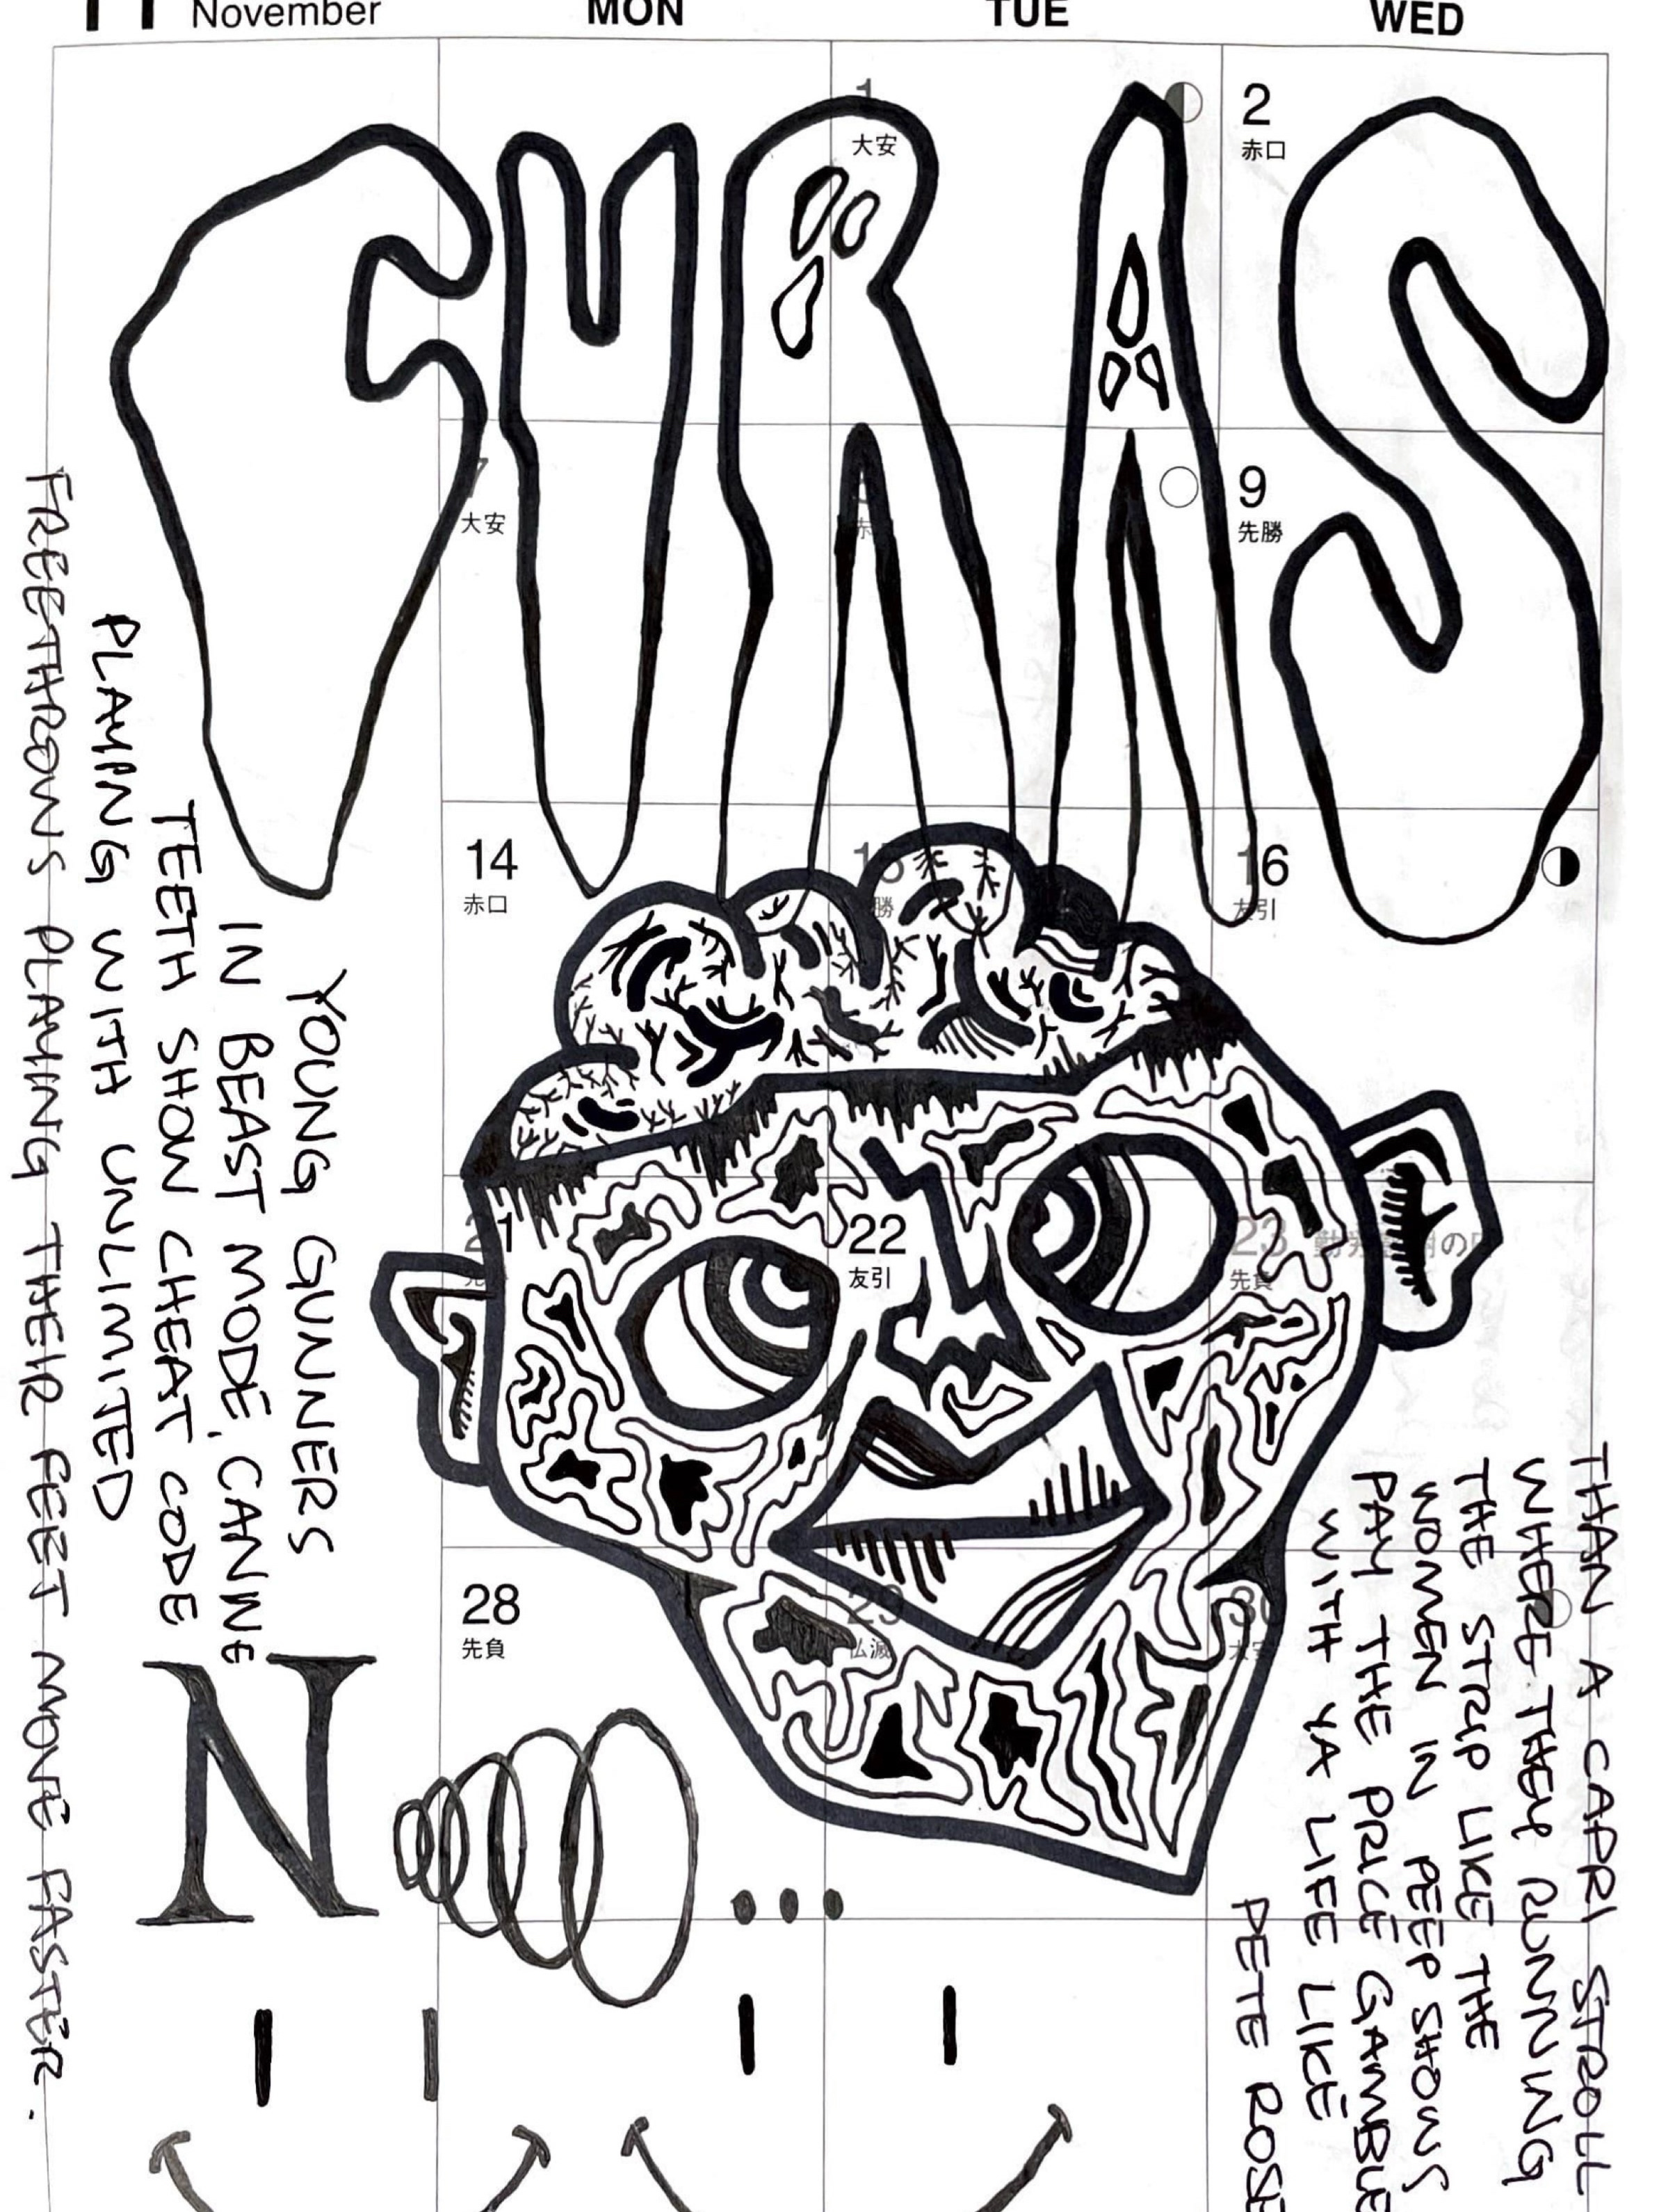 11 November MON TUE WED
CYRAS
1
大安
2
赤口
7
大安
8
9
先勝
14
赤口
15
16
友引
21
22
友引
23
先負
28
先負
29
仏滅
30
YOUNG GUNNERS
IN BEAST MODE, CANINE
TEETH SHOW CHEAT CODE
PLAYING WITH UNLIMITED
FREETHROWS PLAYING THEIR FEET MOVE FASTER.
THAN A CAPRI STROLL
WHERE THEY RUNNING
THE STRIP LIKE THE
WOMEN IN PEEP SHOWS
PAY THE PRICE GAMBLE
WITH YA LIFE LIKE
PETE ROSE
N
...